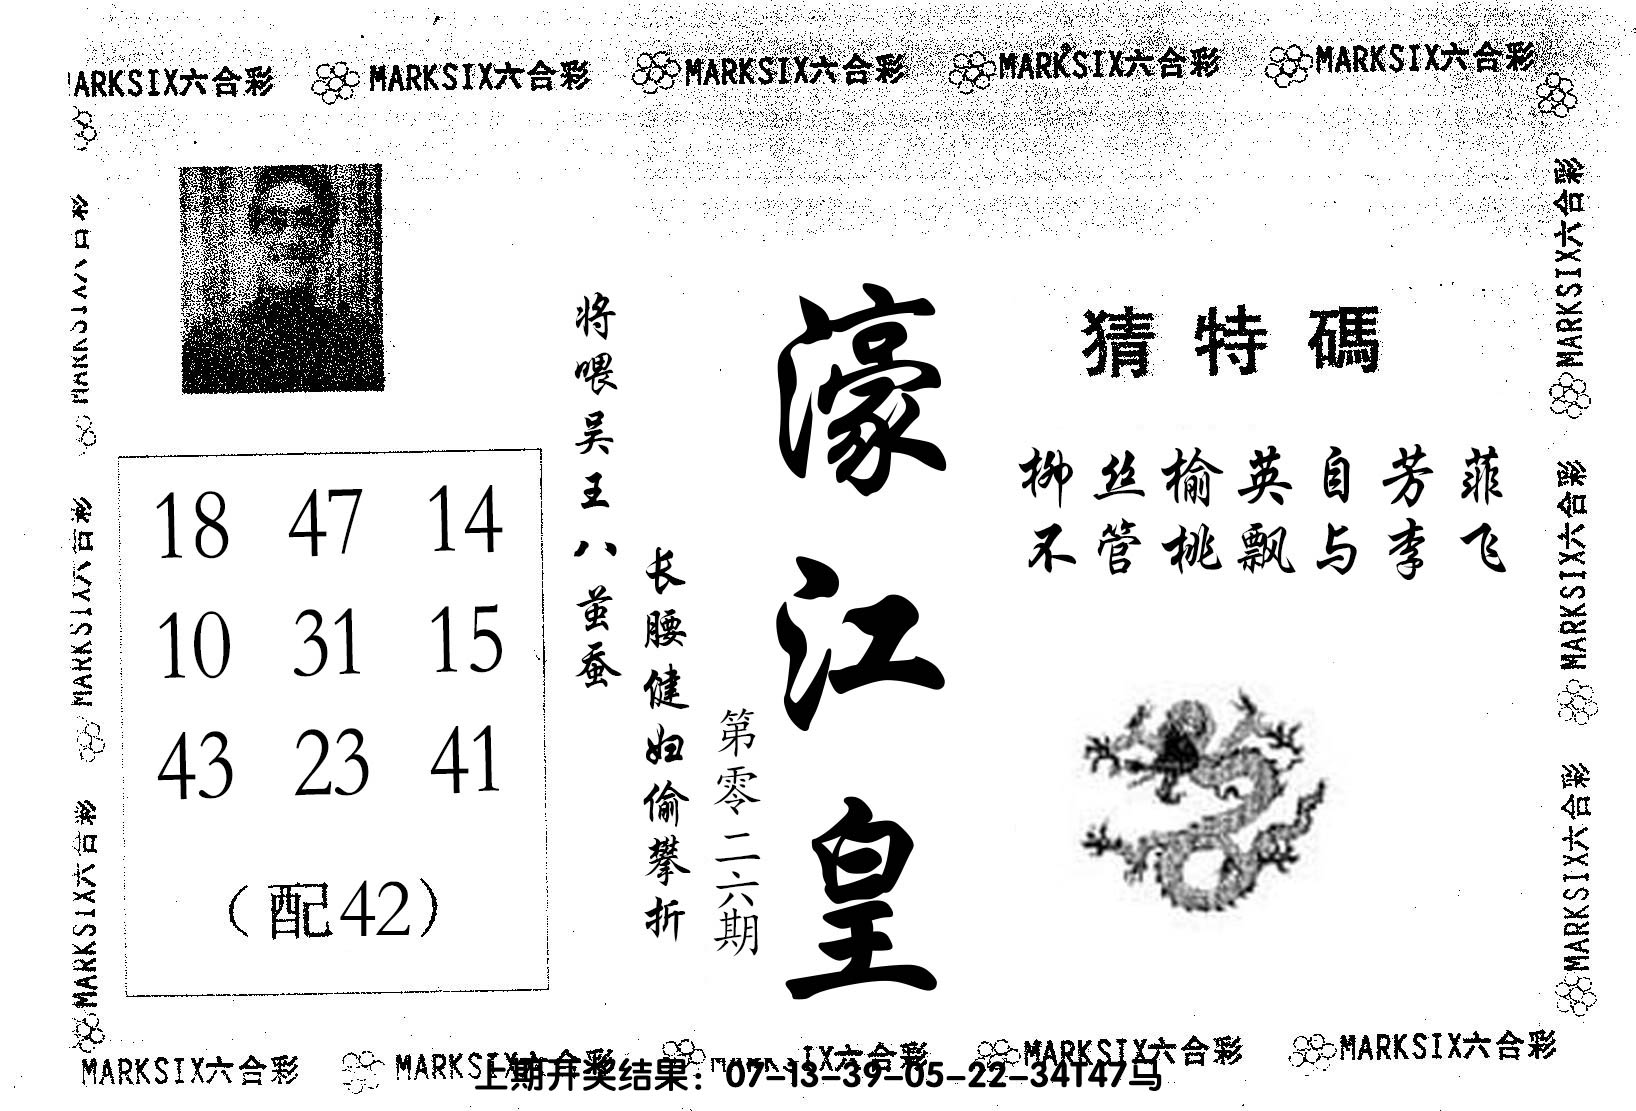 MARKSIX六合彩 MARKSIX六合彩 MARKSIX六合彩 MARKSIX六合彩 MARKSIX六合彩
猜特碼
柳丝榆英自芳菲
不管桃飘与李飞
濠江皇
第零二六期
长腰健妇偷攀折
将喂吴王八茧蚕
18 47 14
10 31 15
43 23 41
（配42）
MARKSIX六合彩
MARKSIX六合彩
MARKSIX六合彩
MARKSIX六合彩
MARKSIX六合彩
MARKSIX六合彩
MARKSIX六合彩 MARKSIX六合彩 MARKSIX六合彩 MARKSIX六合彩 MARKSIX六合彩
上期开奖结果：07-13-39-05-22-34T47马